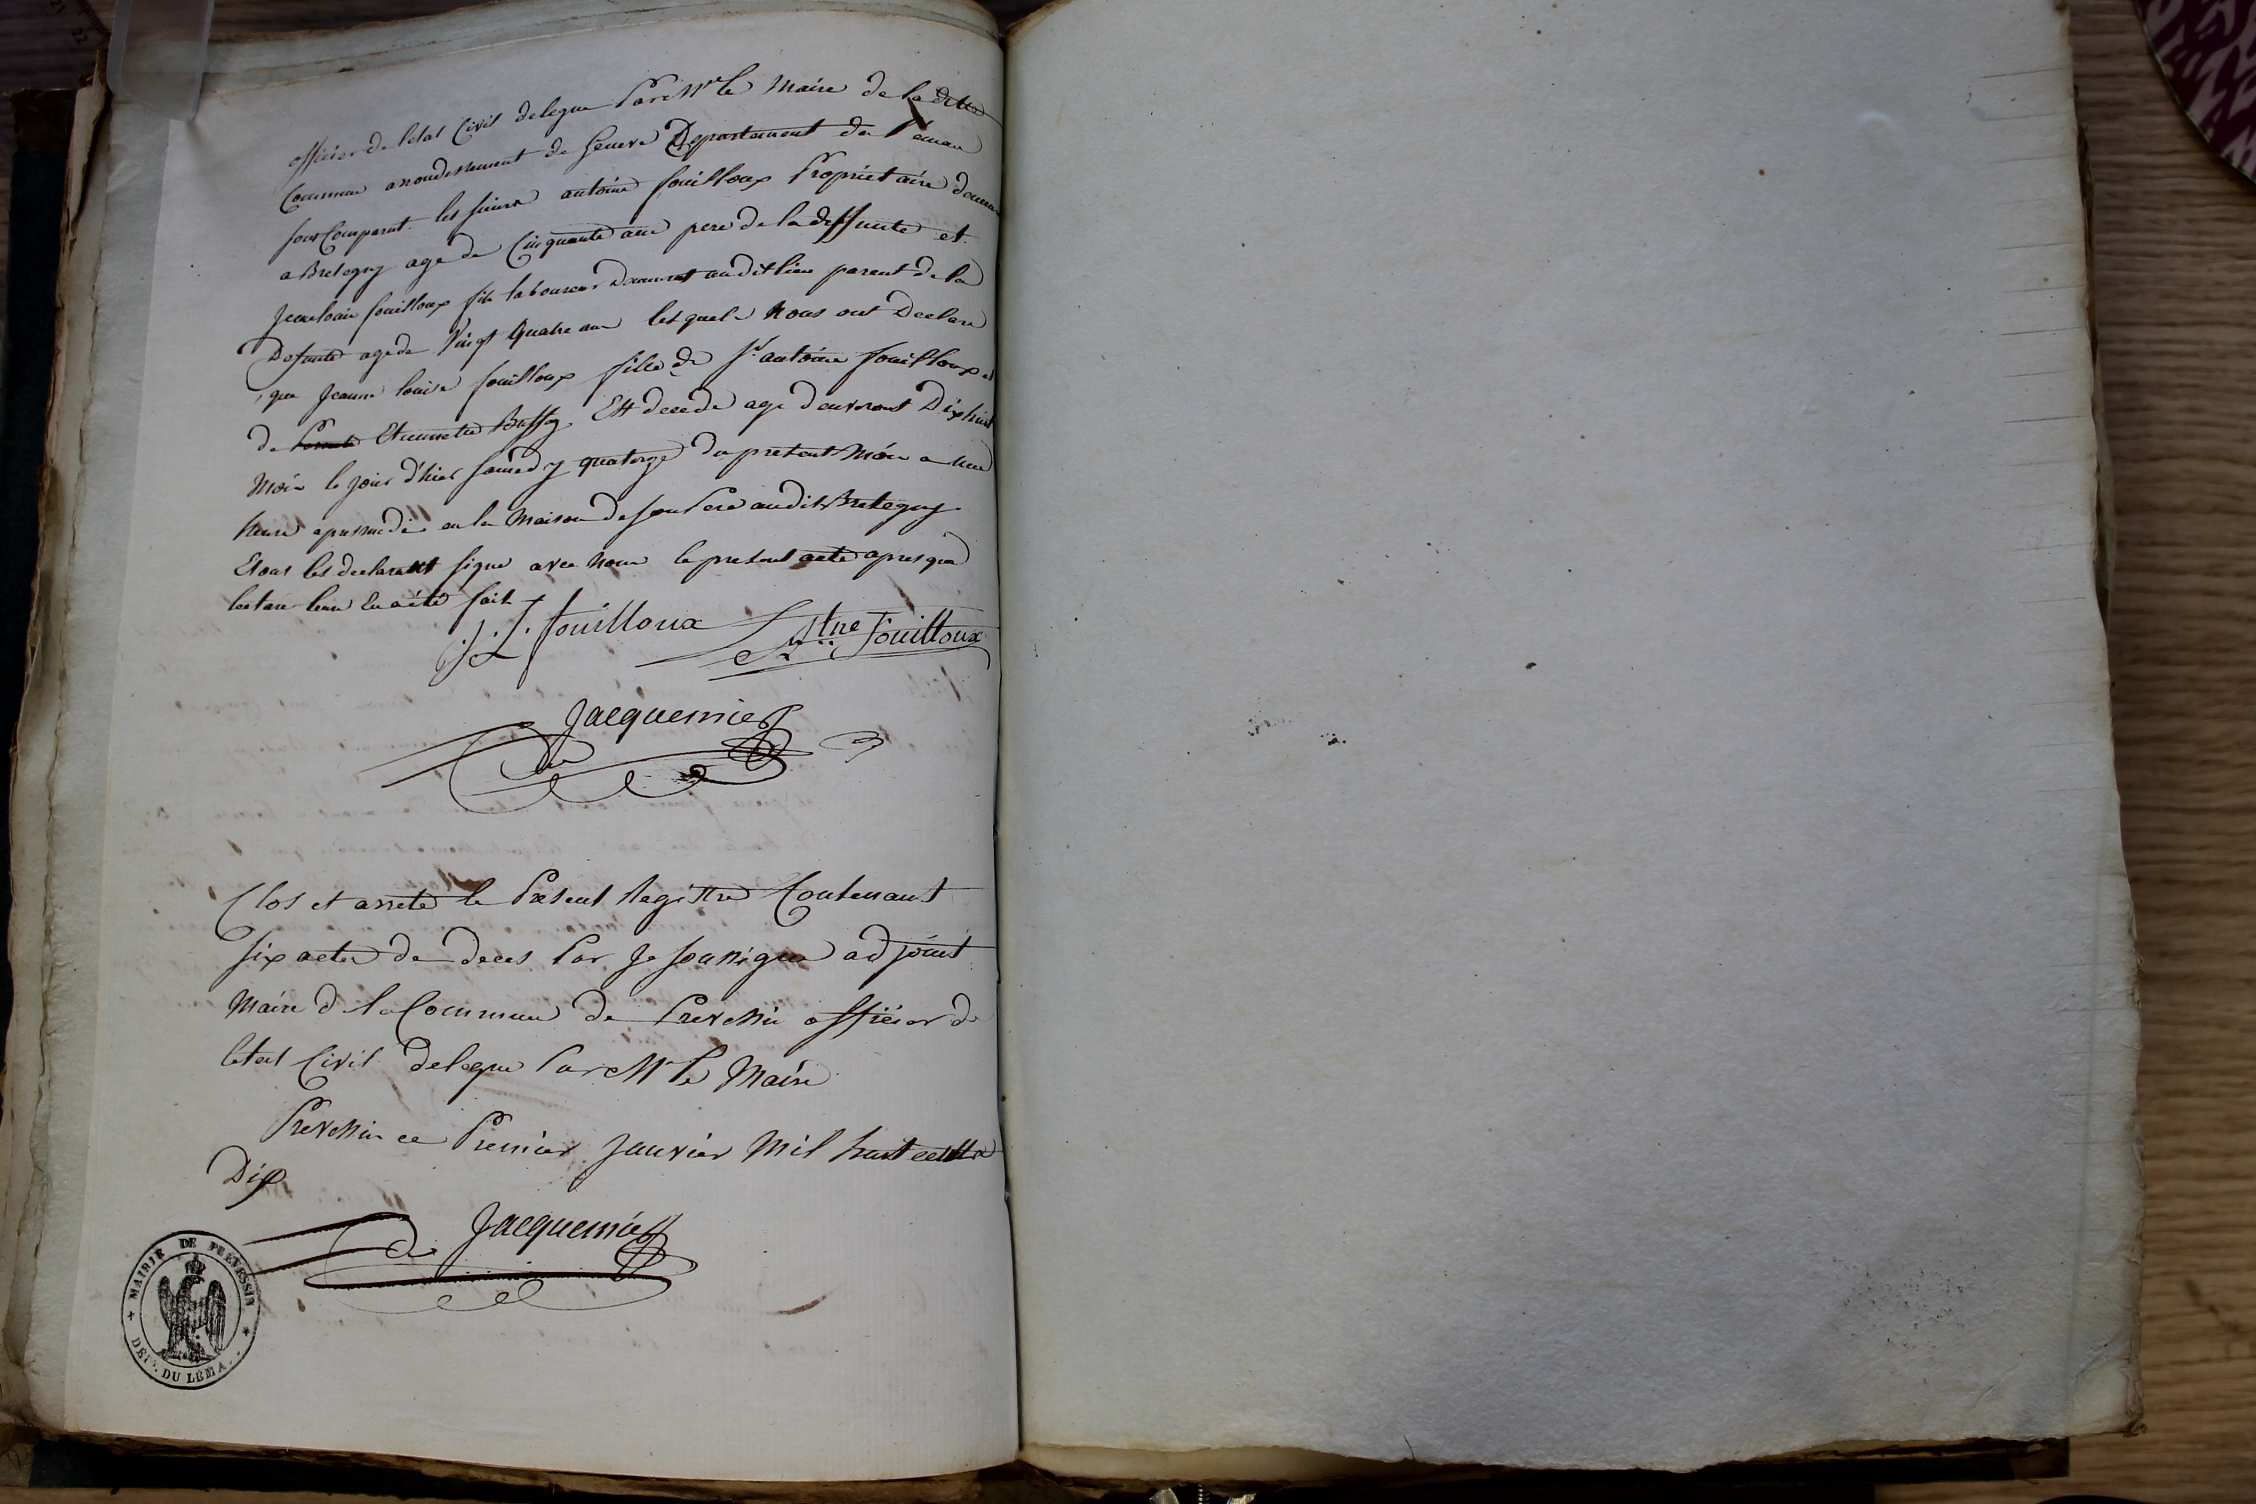 officier de letat Civil delegue Par Mr le Maire de la ditte
Commune arrondissement de Geneve Departement du Leman
sont Comparut les sieurs antoine fouilloux Propriétaire demeu
a Bretegny age de Cinquante ans pere de la deffunte et
Jean louis fouilloux fils laboureur demeurant audit lieu parent de la
Defunte age de Vingt Quatre ans lesquels Nous ont Declare
que Jeanne louise fouilloux fille de Sr antoine fouilloux et
de Etiennette Bussy Est decede age denviront Dix huit
Mois le jour d'hier samedy quatorze du present Mois a une
heure apresmidi en la Maison de son Pere audit Bretegny
Et ont les declarant signe avec Nous le present acte apres que
lecture leur En a été fait
J. L. fouilloux Antne Fouilloux
Jacquemier
Clos et arrete le Present Registre Contenant
six actes de deces Par Je soussigne adjoint
Maire d la Commune de Prevessin officier de
letat Civil delegue Par Mr le Maire
Prevessin ce Premier Janvier Mil huit cents
Dix
Jacquemier
MAIRIE DE PREVESSIN
DEPT. DU LEMA